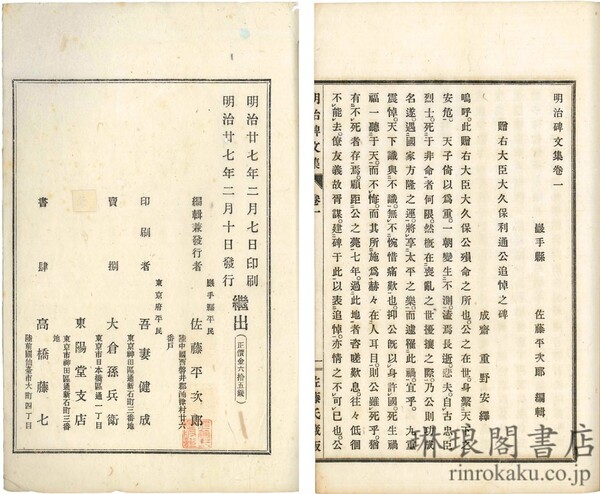 明治碑文集卷一
巖手縣 佐藤平次郎 編輯
贈右大臣大久保利通公追悼之碑
成齋 重野安繹
嗚呼。此贈右大臣大久保公殞命之所也。公之在世。身繫天下之
安危。 天子倚以爲重。一朝變生不測。溘焉長逝。悲夫。自古忠臣
烈士。死于非命者何限。然槪在喪亂之世擾攘之際。乃公則功成
名遂。遇國家方隆之運。將享太平之樂。而遽罹此禍。宜乎。九重
震悼。天下識與不識。無不惋惜痛歎也。抑公旣以身許國。死生禍
福一聽于天。而不悔。而其所施爲。赫々在人耳目。則公雖死乎。猶
有不死者存焉。顧距公之薨。七年。過此地者。咨嗟歎息。往々低徊
不能去。僚友義故胥謀。建碑于此以表追悼。亦情之不可已也。公
明治碑文集 卷一
一 佐藤氏藏版
明治廿七年二月七日印刷
明治廿七年二月十日發行
繼出
正價金六拾五錢
編輯兼發行者
巖手縣平民
佐藤平次郎
陸中國西磐井郡涌津村廿六番戸
印刷者
東京府平民
吾妻健成
東京市神田區通新石町三番地
賣捌
大倉孫兵衛
東京市日本橋區通一丁目
東陽堂支店
東京市神田區通新石町三番地
書肆
高橋藤七
陸前國仙臺市大町四丁目
琳琅閣書店
rinrokaku.co.jp